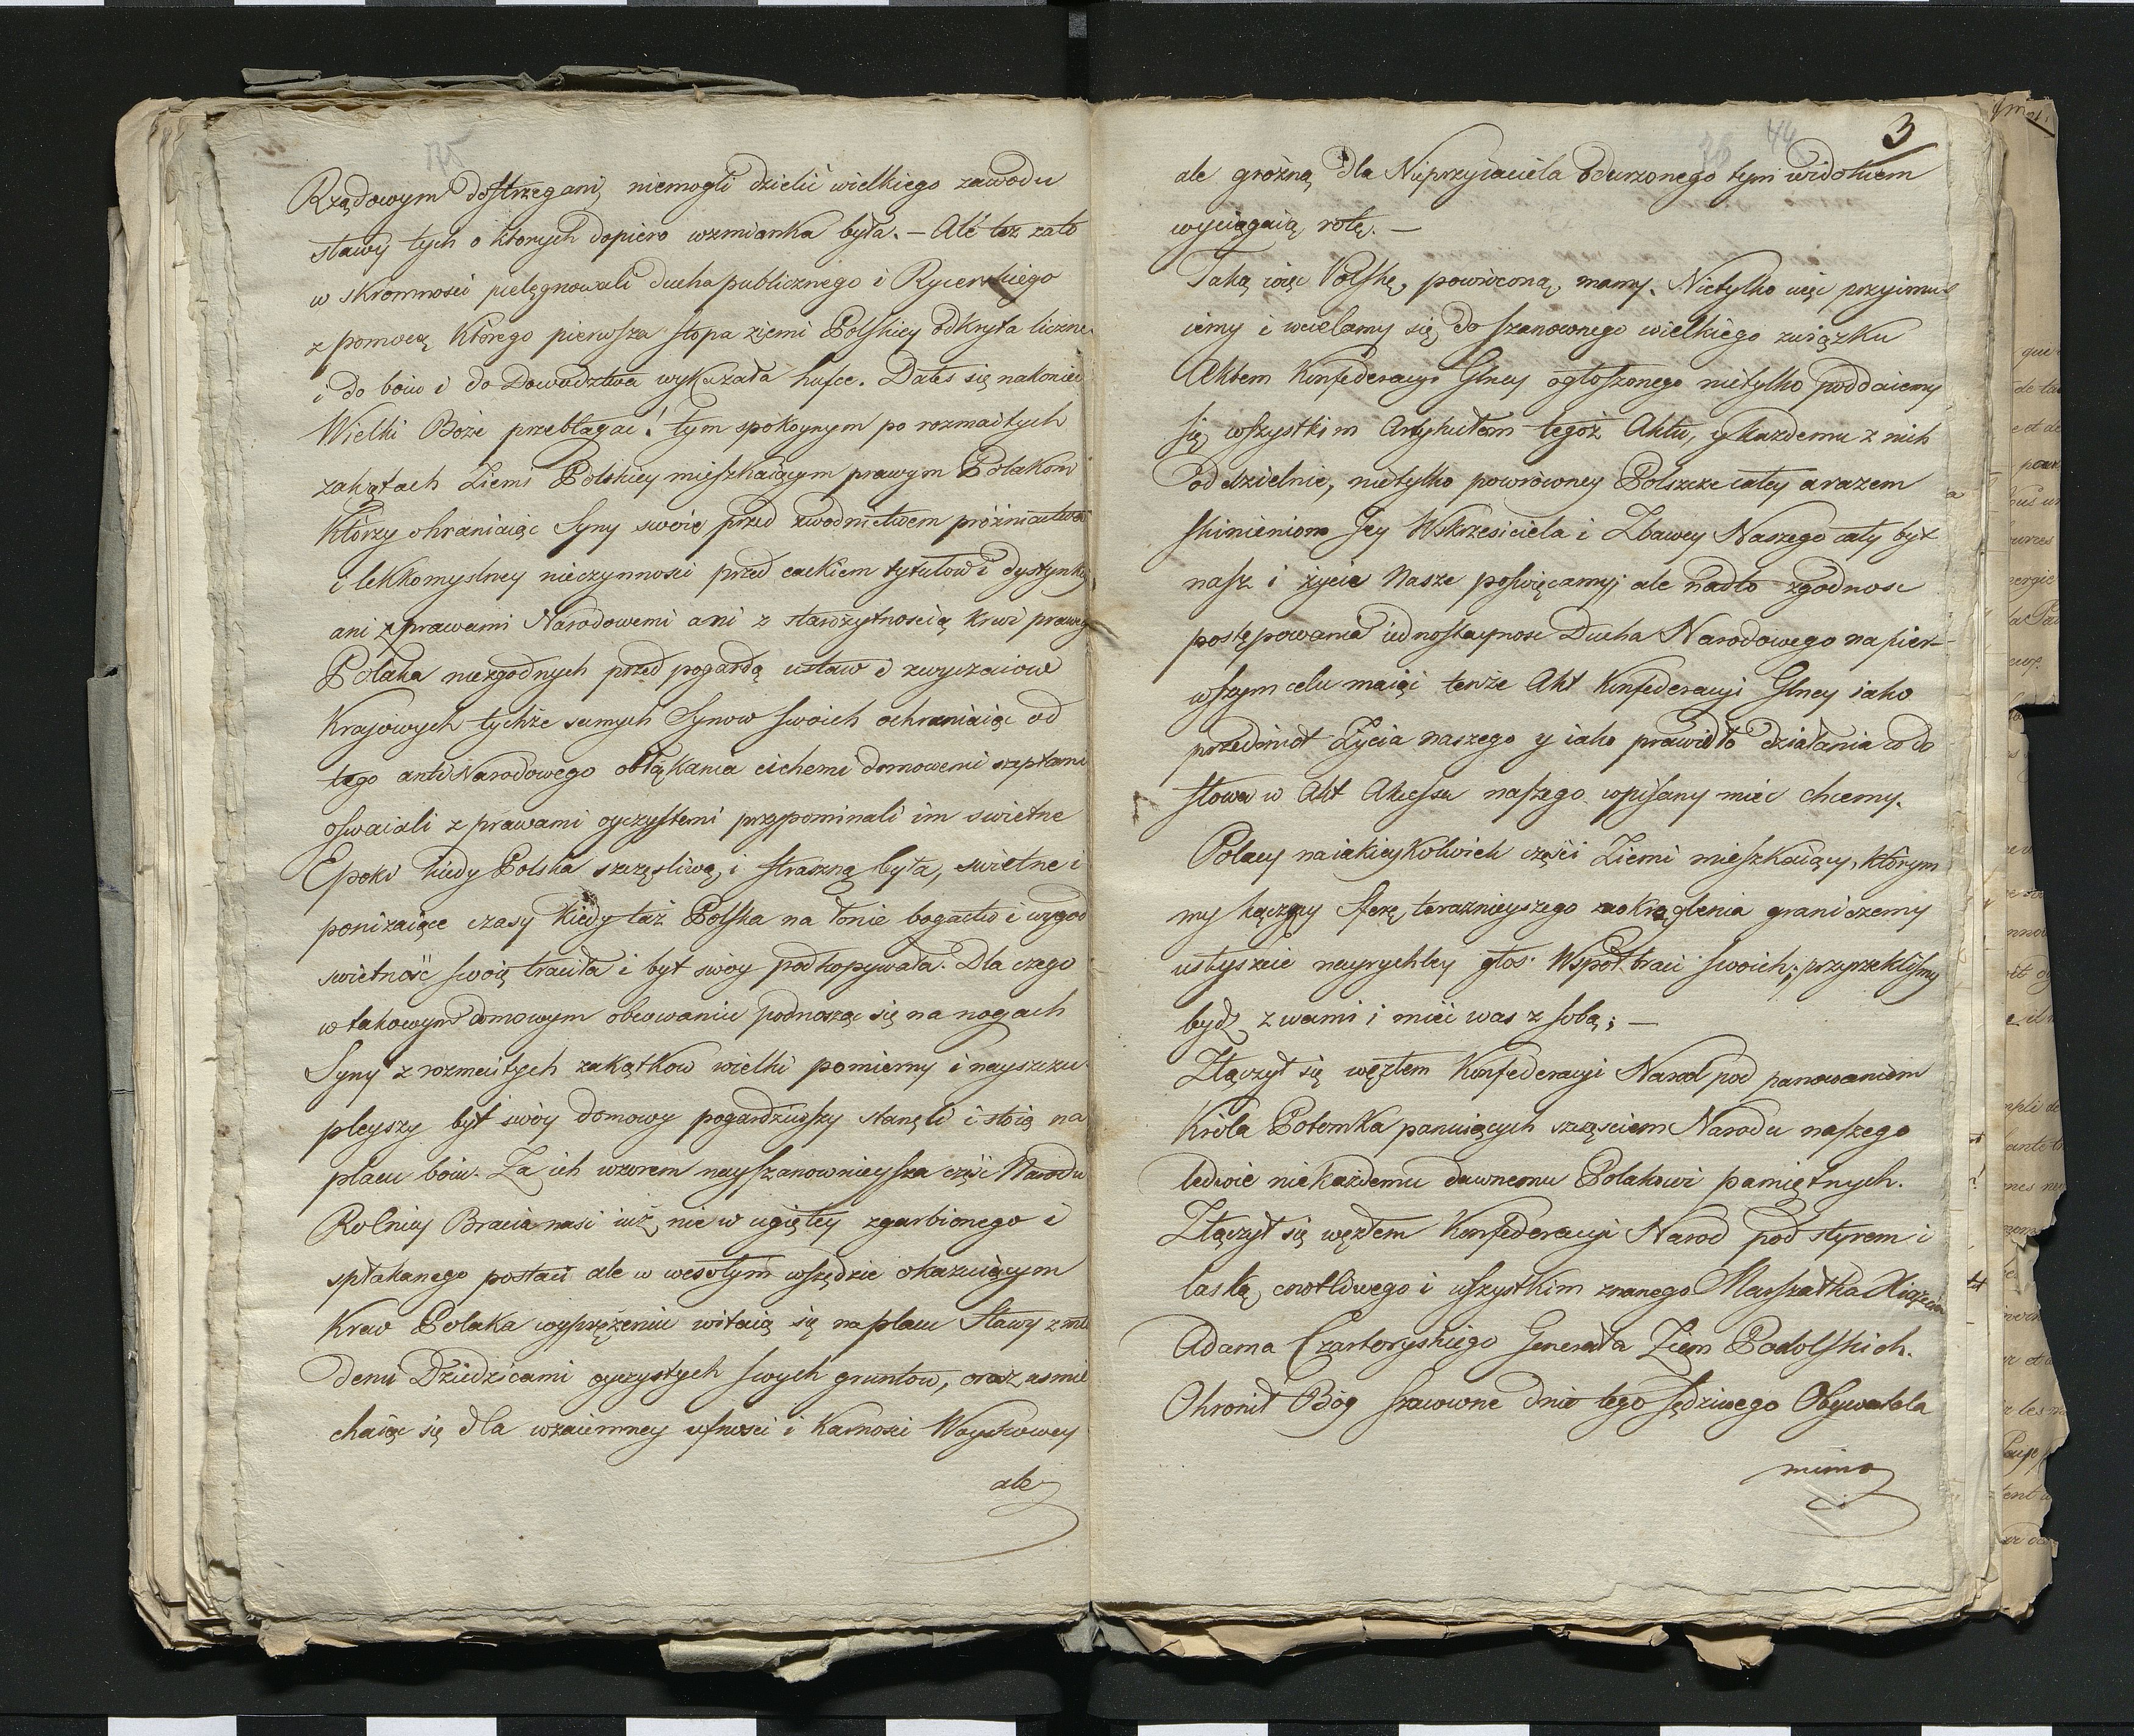 175
Rządowym dostrzegani, niemogli dzielić wielkiego zawodu
sławy tych o ktorych dopiero wzmianka była. — Ale też zato
w skromnosci pielęgnowali ducha publicznego i Rycerskiego
z pomocą którego pierwsza stopa ziemi Polskiey odkryta liczne
i do boiu i do Dowodztwa wykazała hufce. Dałeś się nakoniec
Wielki Boże przebłagać! tym spokoynym po rozmaitych
zakątach Ziemi Polskiey mieszkaiącym prawym Polakom
Którzy ohraniaiąc Syny swoie przed zwodnictwem próżniactwa
i lekkomyslney nieczynnosci przed cackiem tytułow i dystynkcy
ani z prawami Narodowemi ani z starożytnoscią krwi prawego
Polaka niezgodnych przed pogardą ustaw i zwyczaiow
Krajowych tychże samych Synow swoich ochraniaiąc od
tego anti Narodowego obłąkania cichemi domowemi szeptami
oswaiali z prawami oyczystemi przypominali im swietne
Epoki kiedy Polska szczęsliwą, i straszną była, swietne i
poniżaiące czasy kiedy taż Polska na łonie bogactw i wygod
swietność swoię traciła i byt swoy podkopywała. Dla czego
w takowym domowym obcowaniu podnosząc się na nogach
Syny z rozmaitych zakątkow wielki pomierny i nayszczu
pleyszy byt swóy domowy pogardziwszy stanęli i stoią na
placu boiu. Za ich wzorem nayszanownieysza część Narodu
Rolnicy Bracia nasi iuż nie w ugiętey zgarbionego i
spłakanego postaci ale w wesołym wszędzie okazuiącym
Krew Polaka wyprężeniu witaią się na placu Sławy z mło
demi Dziedzicami oyczystych swych gruntow, oraz usmie
chaiąc się dla wzaiemney ufności i Karnosci Woyskowey
ale
76 44 3
ale groźną dla Nieprzyiaciela odurzonego tym widokiem
wyciągaią rotę. —
Taką więc Polskę, powróconą, mamy. Nietylko więc przyimu
iemy i wcielamy się do szanownego wielkiego związku
Aktem Konfederacyi Glney ogłoszonego nietylko poddaiemy
się wszystkim Artykułom tegoż Aktu, y każdemu z nich
oddzielnie, nietylko powróconey Polszcze całey a razem
skinieniom Jey Wskrzesiciela i Zbawcy Naszego cały byt
nasz i życie Nasze poswięcamy; ale nadto zgodnosc
postępowania iednostaynosc Ducha Narodowego na pier-
wszym celu maiąc tenże Akt Konfederacyi Glney iako
przedmiot Życia naszego y iako prawidło działania co do
słowa w Akt Akcessu naszego wpisany mieć chcemy.
Polacy na iakieykolwiek części Ziemi mieszkaiący, którym
my kończący Sferę, teraznieyszego zaokrąglenia graniczemy
usłyszcie nayrychley głos Współbraci swoich; przyrzekliśmy
bydź z wami i mieć was z sobą; —
Złączył się węzłem Konfederacyi Narod pod panowaniem
Króla Potomka panuiących szczęsciem Narodu naszego
ledwie niekażdemu dawnemu Polakowi pamiętnych.
Złączył się węzłem Konfederacyi Narod pod styrem i
laską cnotliwego i wszystkim znanego Marszałka Xiążęcia
Adama Czartoryskiego Generała Ziem Podolskich.
Ohronił Bóg szanowne dnie tego sędziwego Obywatela
mimo